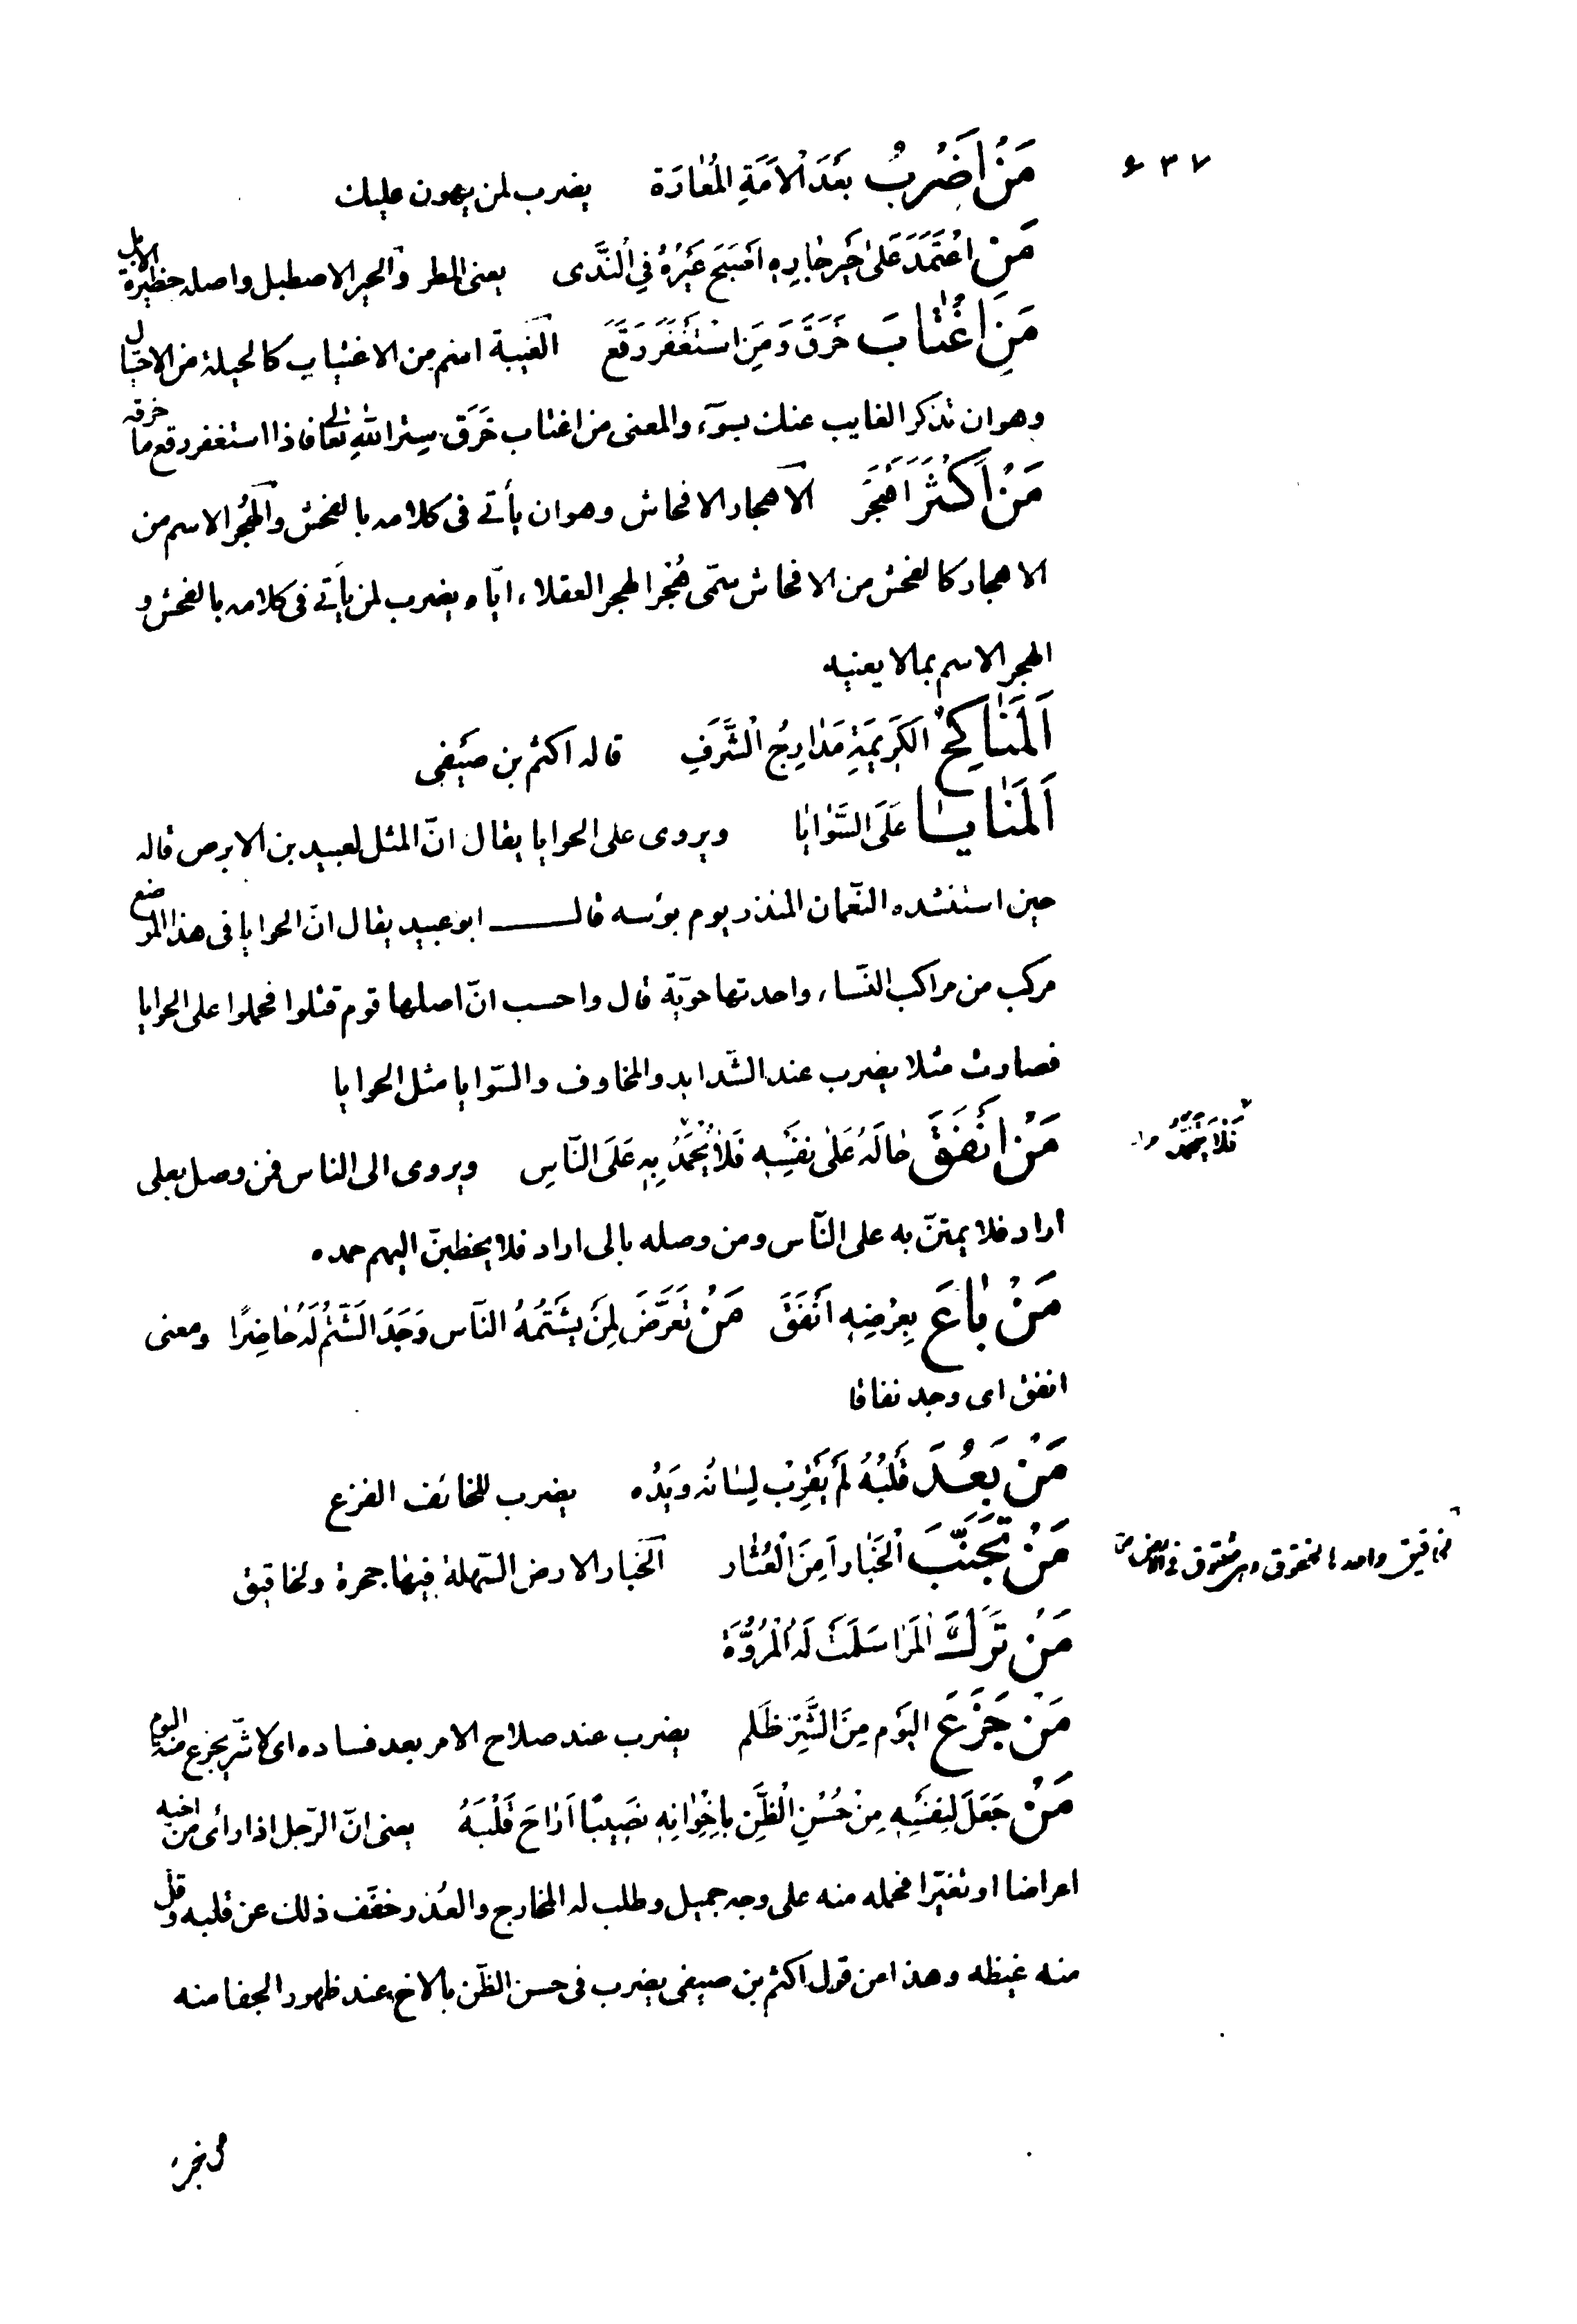 ٦٣٧
مَنْ اَضْرِبُ بَعْدَ الْاَمَةِ الْمُعَارَة يضرب لمن يهون عليك
مَنِ اعْتَمَدَ عَلَىٰ حَيْرِ جٰارِهِ اَصْبَحَ عَيْرُهُ فِي النَّدَى يعنى المطر والحير الاصطبل واصله حظيرة الابل
مَنِ اغْتٰابَ خَرَقَ وَمَنِ اسْتَغْفَرَ رَقَعَ الغيبة اسم من الاغتياب كالحيلة من الاحتيال
وهو ان تذكر الغايب عنك بسوء والمعنى من اغتاب خَرَق سِتر اللهِ تعالى فاذا استغفر رقع ما خرقه
مَنْ اَكْثَرَ اَهْجَرَ الاهجار الافحاش وهو ان يأتى فى كلامه بالفحش والهُجْر الاسم من
الاهجار كالفحش من الافحاش سمّى هُجْرا لهجر العقلاء ايّاه يضرب لمن يأتى فى كلامه بالفحش و
الهجر الاسم بما لا يعنيه
اَلْمَنٰاكِحُ الْكَرِيمَةِ مَدٰارِجُ الْشَّرَفِ قاله اكثم بن صَيْفى
اَلْمَنٰايٰا عَلَى السَّوٰايٰا ويروى على الحوايا يقال انّ المثل لعبيد بن الابرص قاله
حين استنشده النّعمان المنذر يوم بؤسه قال ابو عبيد يقال انّ الحوايا فى هذا الموضع
مركب من مراكب النّساء واحدتها حويّة قال واحسب انّ اصلها قوم قتلوا فحملوا على الحوايا
فصارت مثلا يضرب عند الشّدايد والمخاوف والسّوايا مثل الحوايا
مَنْ اَنْفَقَ مٰالَهُ عَلٰى نَفْسِهِ فَلٰا يُحْمَدُ بِهِ عَلَى النّاسِ ويروى الى الناس فمن وصل بعلى
فَلٰا يَتَحَمَّدُ
اراد فلا يمتنّ به على النّاس ومن وصله بالى اراد فلا يخطبنّ اليهم حمده
مَنْ بٰاعَ بِعِرْضِهِ اَنْفَقَ مَنْ تَعَرَّضَ لِمَنْ يَشْتُمُهُ النّاس وَجَدَ الشَّتْمُ لَهُ حٰاضِرًا ومعنى
انفق اى وجد نفاقا
مَنْ بَعُدَ قَلْبُهُ لَمْ يَقْرِبْ لِسٰانُهُ وَيَدُه يضرب للخائف الفزع
مَنْ تَجَنَّبَ الْخَبٰارَ اَمِنَ الْعُثٰار الخَبار الارض السّهلة فيها جحرة ولخاقيق
لخاقيق واحدها لخقوق وهى شقوق فى الارض
مَنْ تَرَكَ الْمِرٰا سَلِمَتْ لَهُ الْمُرُوَّةُ
مَنْ جَزَعَ الْيَوْمَ مِنَ الشَّرِّ ظَلم يضرب عند صلاح الامر بعد فساده اى لا شرّ يجزع منه اليوم
مَنْ جَعَلَ لِنَفْسِهِ مِنْ حُسْنِ الْظَّنِّ بِاِخْوٰانِهِ نَصِيبًا اَرٰاحَ قَلْبَهُ يعنى انّ الرّجل اذا رأى من اخيه
اعراضا او تغيّرا فحمله منه على وجه جميل وطلب له المخارج والعُذر خفّف ذلك عن قلبه وقل
منه غيظه وهذا من قول اكثم بن صيفى يضرب فى حسن الظّن بالاخ عند ظهور الجفا منه